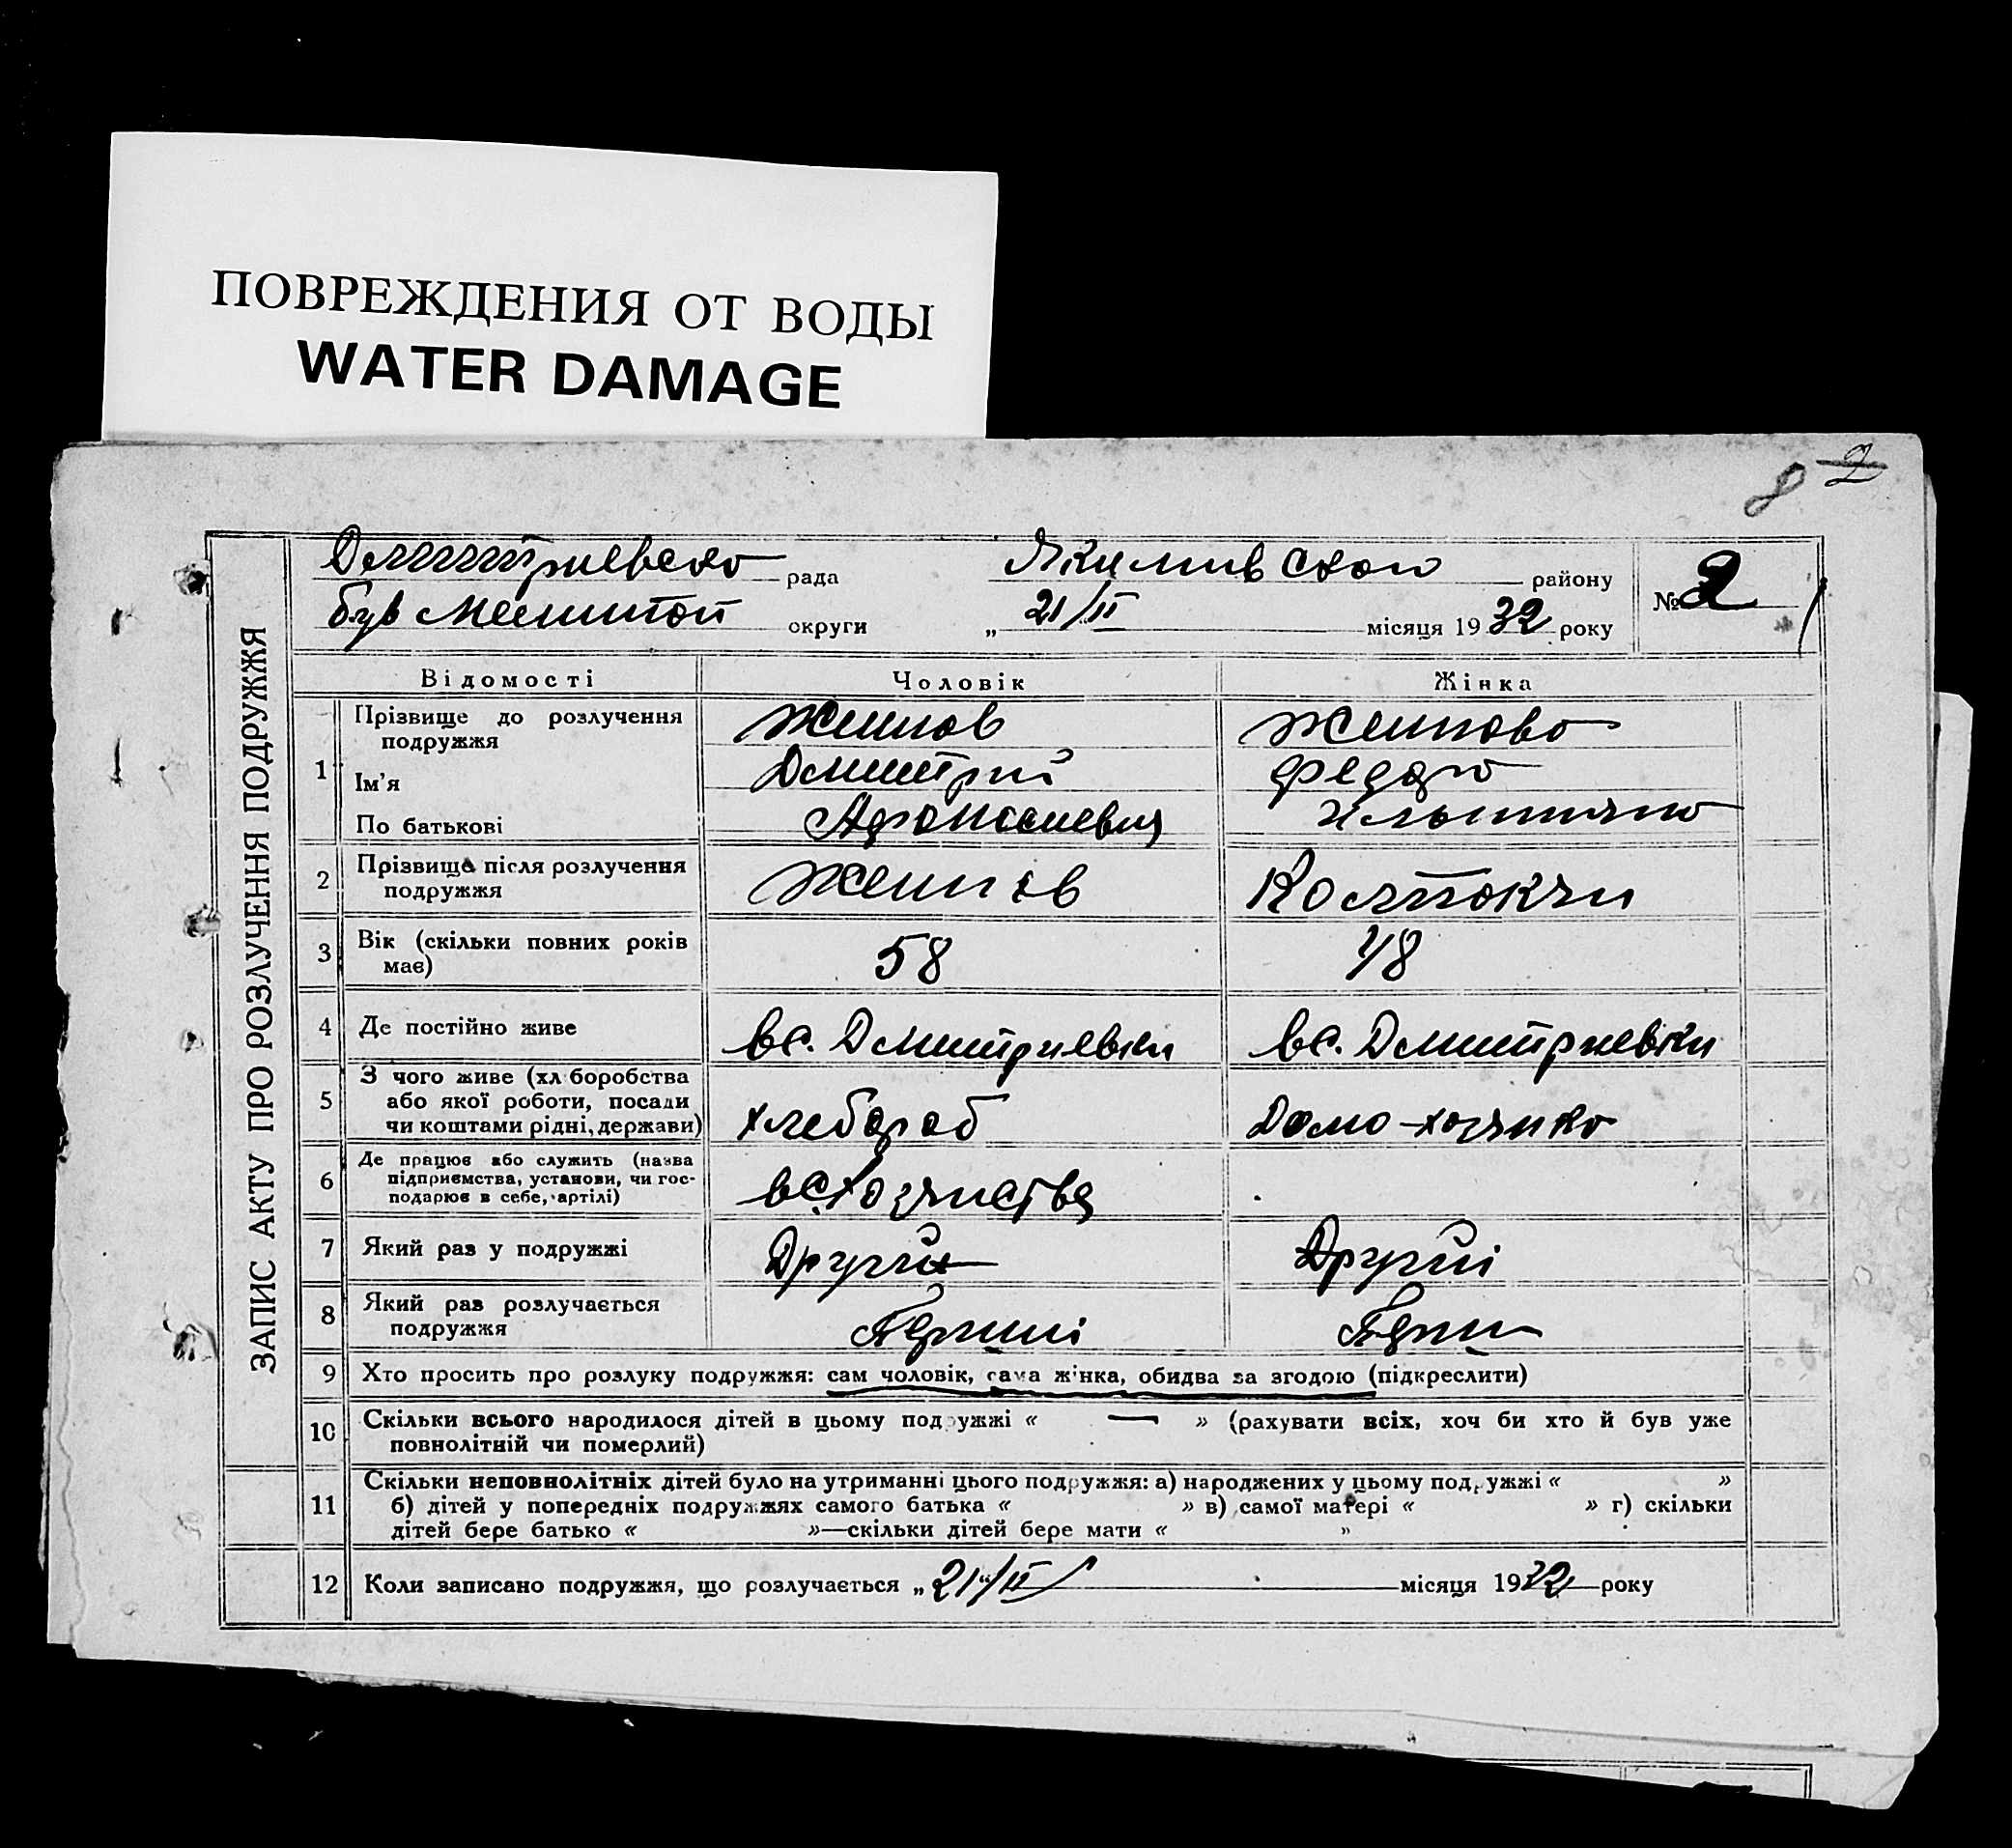 ПОВРЕЖДЕНИЯ ОТ ВОДЫ
WATER DAMAGE
8 2
ЗАПИС АКТУ ПРО РОЗЛУЧЕННЯ ПОДРУЖЖЯ
рада Якимивской району № 2
був Мелитоп округи „ 21/II місяця 1932 року
Відомості Чоловік Жінка
1 Прізвище до розлучення подружжя
Ім'я Дмитрий Федора
По батькові Афонасиевич
2 Прізвище після розлучення подружжя
3 Вік (скільки повних років має) 58 48
4 Де постійно живе вс. Дмитриевки вс. Дмитриевки
5 З чого живе (хліборобства або якої роботи, посади чи коштами рідні, держави) хлебороб Домо-хозяйко
6 Де працює або служить (назва підприємства, установи, чи господарює в себе, артілі)
7 Який раз у подружжі Другий Другий
8 Який раз розлучається подружжя
9 Хто просить про розлуку подружжя: сам чоловік, сама жінка, обидва за згодою (підкреслити)
10 Скільки всього народилося дітей в цьому подружжі « — » (рахувати всіх, хоч би хто й був уже
повнолітній чи померлий)
11 Скільки неповнолітніх дітей було на утриманні цього подружжя: а) народжених у цьому подружжі « »
б) дітей у попередніх подружжях самого батька « » в) самої матері « » г) скільки
дітей бере батько « »—скільки дітей бере мати « »
12 Коли записано подружжя, що розлучається „ 21/II місяця 1932 року